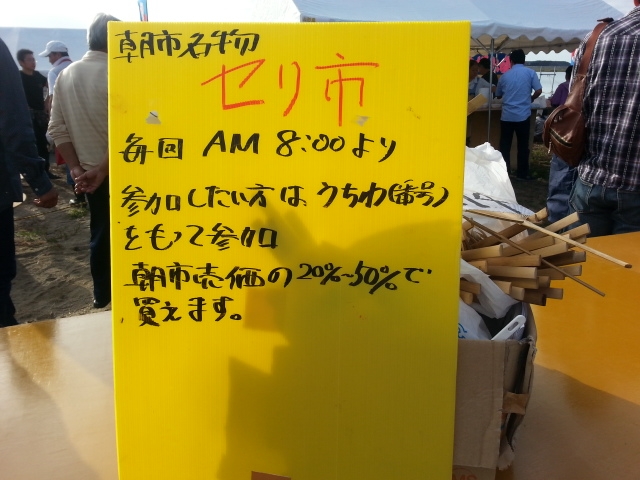 朝市名物
セリ市
毎回 AM 8:00より
参加したい方は うちわ(番号)
をもって参加
朝市売価の20%~50%で
買えます。